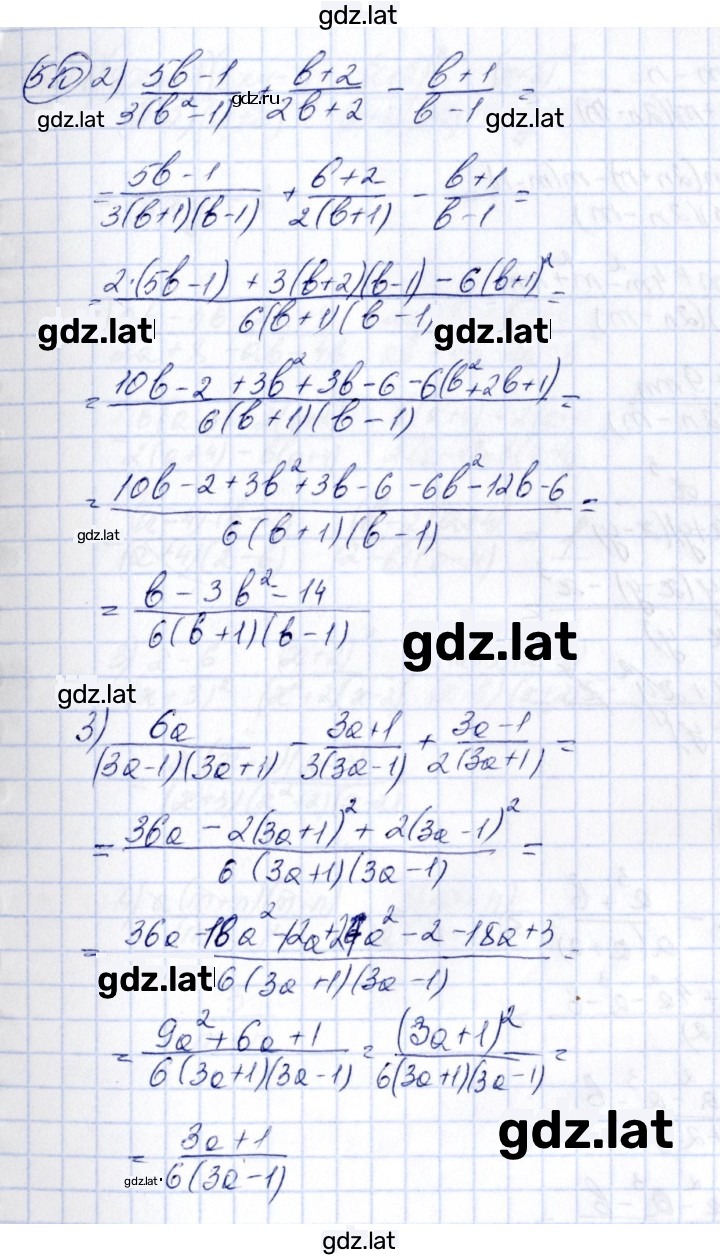 gdz.lat
510 2) (5b-1)/(3(b²-1)) + (b+2)/(2b+2) - (b+1)/(b-1) =
gdz.ru
gdz.lat gdz.lat
= (5b-1)/(3(b+1)(b-1)) + (b+2)/(2(b+1)) - (b+1)/(b-1) =
= (2·(5b-1) + 3(b+2)(b-1) - 6(b+1)²)/(6(b+1)(b-1)) =
gdz.lat gdz.lat
= (10b-2+3b²+3b-6-6(b²+2b+1))/(6(b+1)(b-1)) =
= (10b-2+3b²+3b-6-6b²-12b-6)/(6(b+1)(b-1)) =
gdz.lat
= (b-3b²-14)/(6(b+1)(b-1))
gdz.lat
gdz.lat
3) 6a/((3a-1)(3a+1)) - (3a+1)/(3(3a-1)) + (3a-1)/(2(3a+1)) =
= (36a - 2(3a+1)² + 2(3a-1)²)/(6(3a+1)(3a-1)) =
= (36a-18a²-12a+27a²-2-18a+3)/(6(3a+1)(3a-1)) =
gdz.lat
= (9a²+6a+1)/(6(3a+1)(3a-1)) = (3a+1)²/(6(3a+1)(3a-1)) =
gdz.lat
= (3a+1)/(6(3a-1))
gdz.lat
gdz.lat